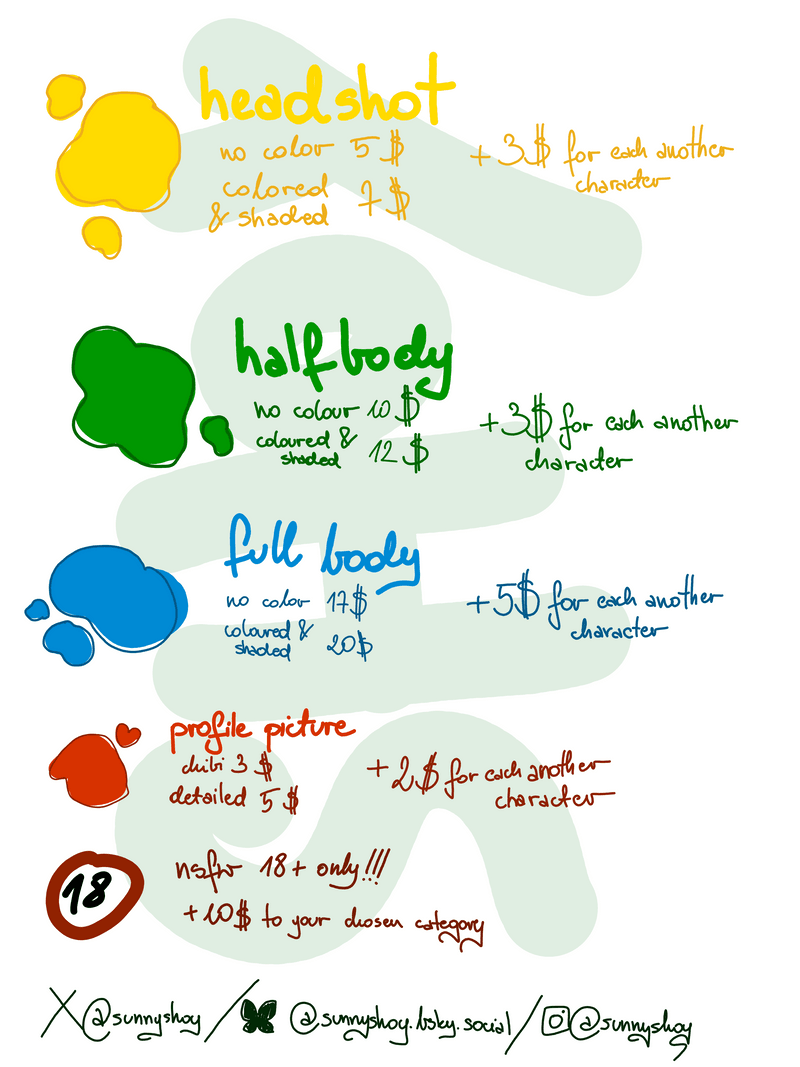 headshot
no color 5$
colored
& shaded 7$
+3$ for each another
character
half body
no colour 10$
coloured &
shaded 12$
+3$ for each another
character
full body
no color 17$
coloured &
shaded 20$
+5$ for each another
character
profile picture
chibi 3$
detailed 5$
+2$ for each another
character
18
nsfw 18+ only!!!
+10$ to your chosen category
X@sunnyshoy / @sunnyshoy.bsky.social / @sunnyshoy